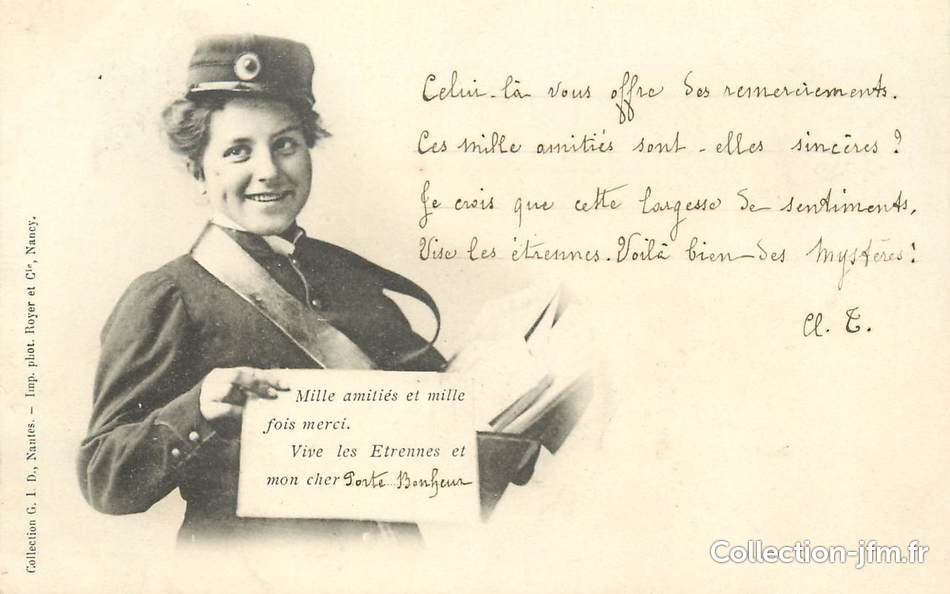 Celui-là vous offre des remerciements.
Ces mille amitiés sont-elles sincères ?
Je crois que cette largesse de sentiments,
Vise les étrennes. Voilà bien des Mystères !
Cl. T.
Mille amitiés et mille
fois merci.
Vive les Etrennes et
mon cher Porte Bonheur
Collection G. I. D., Nantes. — Imp. phot. Royer et Cie, Nancy.
Collection-jfm.fr